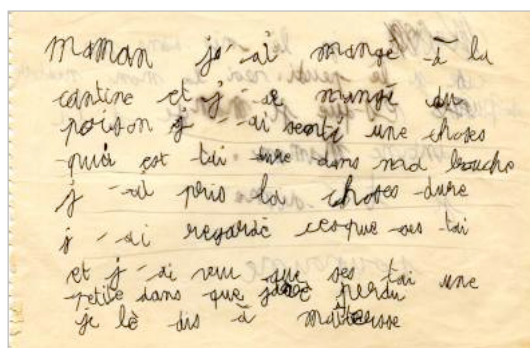 maman j'ai mangé à la
cantine et j'ai mangé du
poison j'ai senti une choses
qui est tai dure dans ma bouche
j'ai pris la choses dure
j'ai regardé cesque ses tai
et j'ai veu que ses tai une
petite dans que javé perdu
je lè dis à maitresse